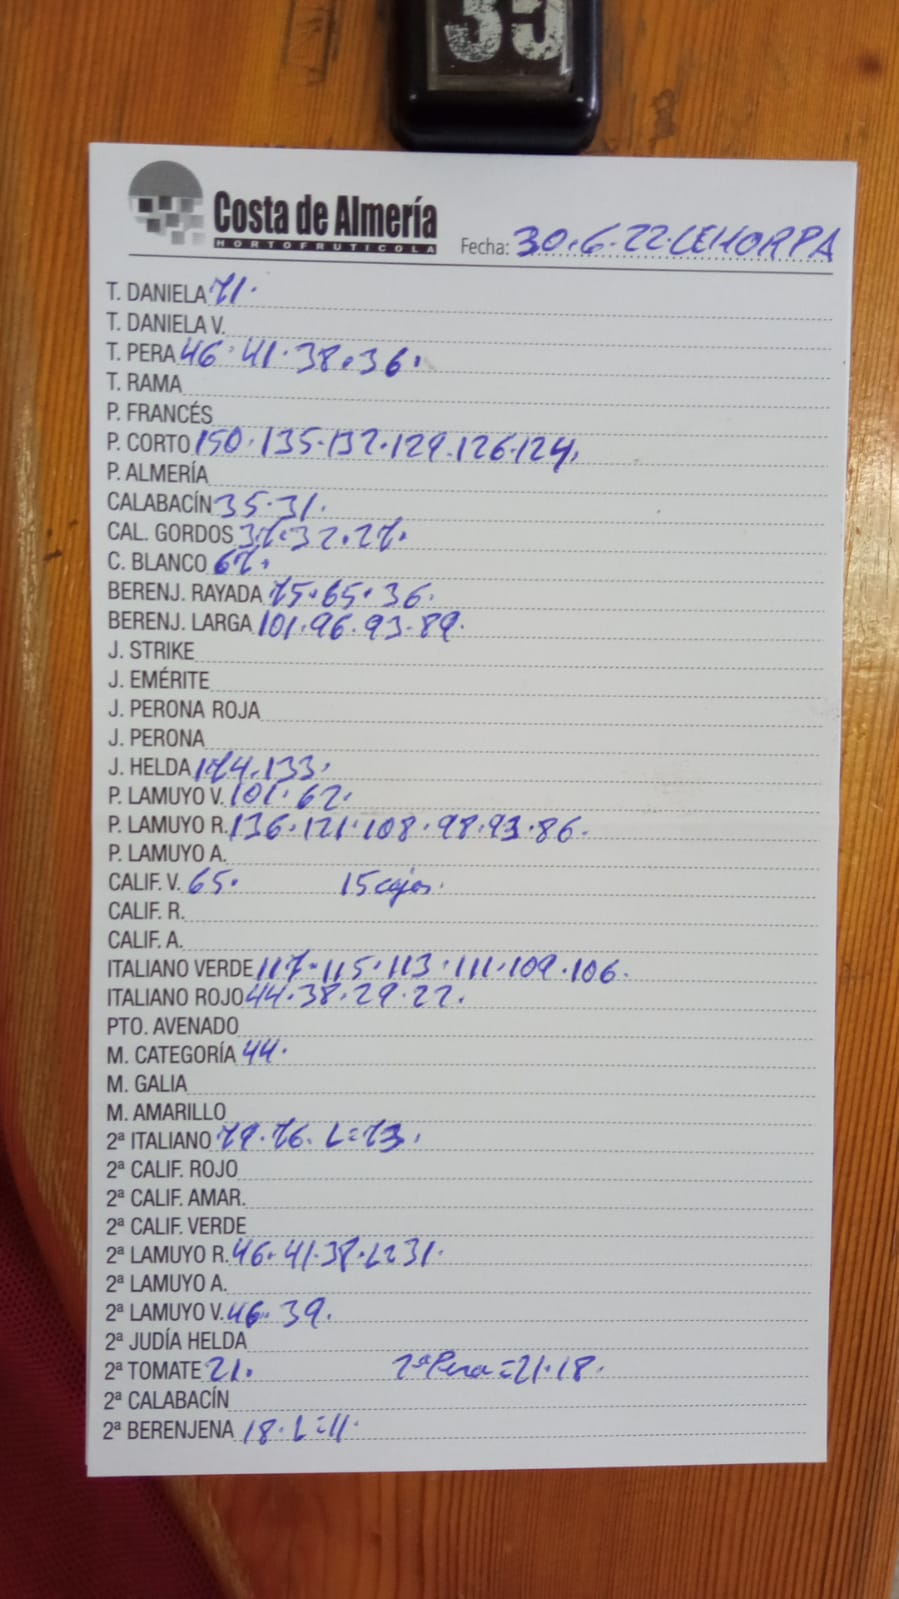 35
Costa de Almería
HORTOFRUTICOLA
Fecha: 30.6.22.CEHORPA
T. DANIELA 71.
T. DANIELA V.
T. PERA 46.41.38.36.
T. RAMA
P. FRANCÉS
P. CORTO 150.135.132.129.126.124.
P. ALMERÍA
CALABACÍN 35.31.
CAL. GORDOS 37.32.27.
C. BLANCO 67.
BERENJ. RAYADA 75.65.36.
BERENJ. LARGA 101.96.93.89.
J. STRIKE
J. EMÉRITE
J. PERONA ROJA
J. PERONA
J. HELDA 174.133.
P. LAMUYO V. 101.62.
P. LAMUYO R. 136.121.108.98.93.86.
P. LAMUYO A.
CALIF. V. 65. 15 cajas.
CALIF. R.
CALIF. A.
ITALIANO VERDE 117.115.113.111.109.106.
ITALIANO ROJO 44.38.29.22.
PTO. AVENADO
M. CATEGORÍA 44.
M. GALIA
M. AMARILLO
2ª ITALIANO 79.76. L=73.
2ª CALIF. ROJO
2ª CALIF. AMAR.
2ª CALIF. VERDE
2ª LAMUYO R. 46.41.38.L=31.
2ª LAMUYO A.
2ª LAMUYO V. 46.39.
2ª JUDÍA HELDA
2ª TOMATE 21. 2ª Pera=21.18.
2ª CALABACÍN
2ª BERENJENA 18.L=11.